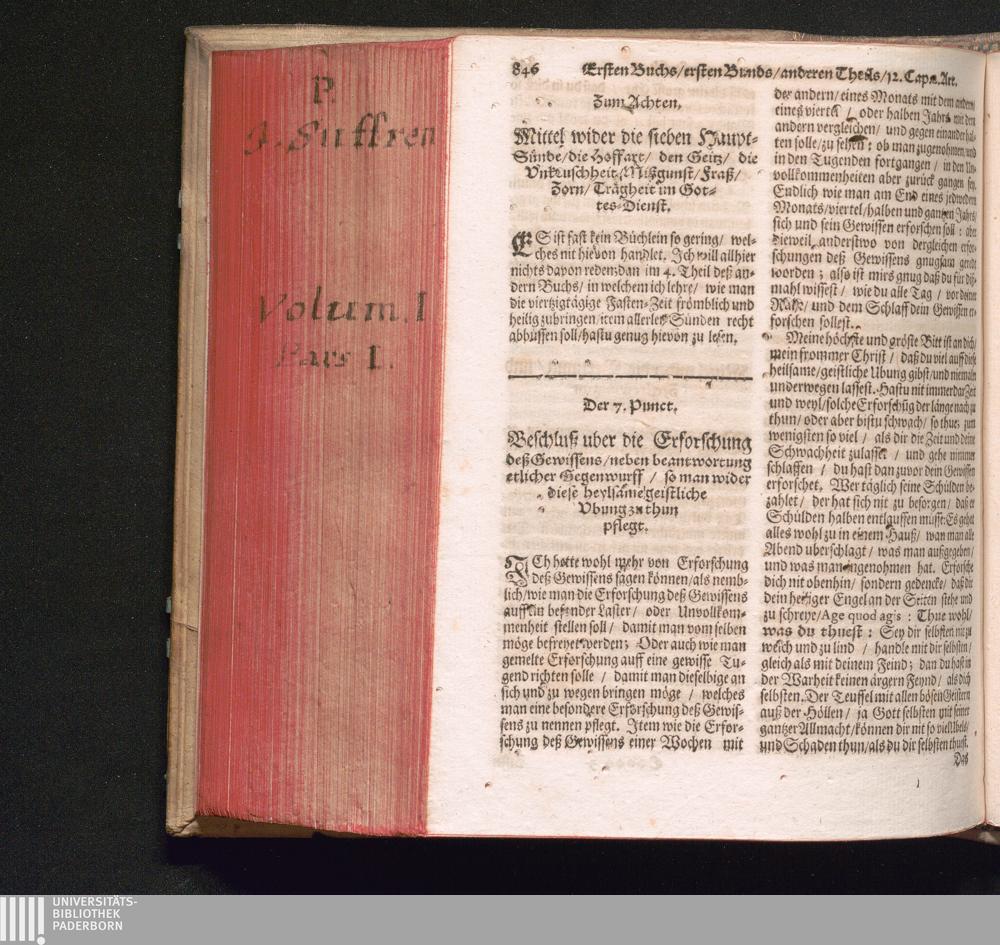 P.
J. Suffren
Volum. I
Pars I.
846 Ersten Buchs/ersten Bunds/anderen Theils/12. Cap. Art.
Zum Achten.
Mittel wider die sieben Haupt-
Sünde/die Hoffart/ den Geitz/ die
Vnkeuschheit/Mißgunst/Fraß/
Zorn/ Trägheit im Got-
tes-Dienst.
ES ist fast kein Büchlein so gering/ wel-
ches nit hievon handlet. Ich will allhier
nichts davon reden; dan im 4. Theil deß an-
dern Buchs/ in welchem ich lehre/ wie man
die viertzigtägige Fasten-Zeit frömblich und
heilig zubringen/ item allerley Sünden recht
abbüssen soll/hastu genug hievon zu lesen.
Der 7. Punct.
Beschluß uber die Erforschung
deß Gewissens/neben beantwortung
etlicher Gegenwurff / so man wider
diese heylsame geistliche
Vbung zu thun
pflegt.
ICh hette wohl mehr von Erforschung
deß Gewissens sagen können/als nemb-
lich/wie man die Erforschung deß Gewissens
auff ein besonder Laster/ oder Unvollkom-
menheit stellen soll/ damit man vom selben
möge befreyet werden; Oder auch wie man
gemelte Erforschung auff eine gewisse Tu-
gend richten solle / damit man dieselbige an
sich und zu wegen bringen möge / welches
man eine besondere Erforschung deß Gewis-
sens zu nennen pflegt. Item wie die Erfor-
schung deß Gewissens einer Wochen mit
der andern/ eines Monats mit dem andern/
eines viertel / oder halben Jahrs mit dem
andern vergleichen/ und gegen einander hal-
ten solle/zu sehen: ob man zugenohmen/und
in den Tugenden fortgangen / in den Un-
vollkommenheiten aber zurück gangen sey.
Endlich wie man am End eines jedweden
Monats/viertel/halben und gantzen Jahrs/
sich und sein Gewissen erforschen soll: aber
dieweil anderstwo von dergleichen erfor-
schungen deß Gewissens gnugsam geredt
worden; also ist mirs gnug daß du für diß-
mahl wissest/ wie du alle Tag / vor deiner
Ruhe/ und dem Schlaff dein Gewissen er-
forschen sollest.
Meine höchste und gröste Bitt ist an dich/
mein frommer Christ/ daß du viel auff diese
heilsame/geistliche Ubung gibst/und niemaln
underwegen lassest. Hastu nit immerdar Zeit
und weyl/solche Erforschũg der länge nach zu
thun/ oder aber bistu schwach/ so thue zum
wenigsten so viel/ als dir die Zeit und deine
Schwachheit zulasset / und gehe nimmer
schlaffen / du hast dan zuvor dein Gewissen
erforschet. Wer täglich seine Schulden be-
zahlet/ der hat sich nit zu besorgen/ daß er
Schulden halben entlauffen müsse: Es gehet
alles wohl zu in einem Hauß/ wan man alle
Abend uberschlagt/ was man außgegeben/
und was man eingenohmen hat. Erforsche
dich nit obenhin/ sondern gedencke/ daß dir
dein heiliger Engel an der Seiten stehe und
zu schreye/Age quod agis: Thue wohl/
was du thuest: Sey dir selbsten nit zu
weich und zu lind / handle mit dir selbsten/
gleich als mit deinem Feind; dan du hast in
der Warheit keinen ärgern Feynd/ als dich
selbsten. Der Teuffel mit allen bösen Geistern
auß der Höllen/ ja Gott selbsten mit seiner
gantzer Allmacht/können dir nit so viel Ubels/
und Schaden thun/als du dir selbsten thust.
Das
UNIVERSITÄTS-
BIBLIOTHEK
PADERBORN